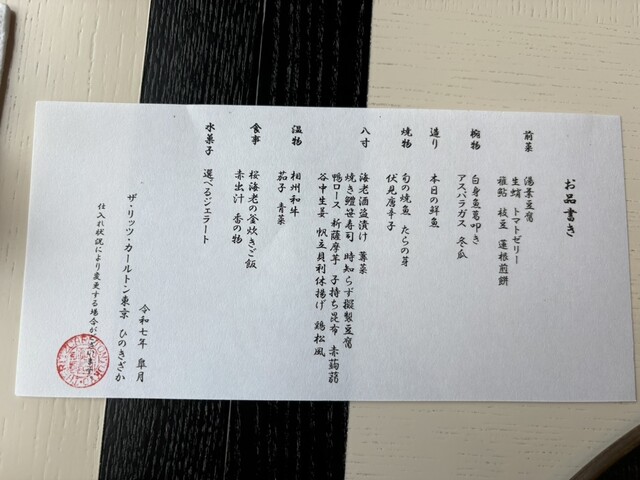 お品書き
前菜 湯葉豆腐
生蛸 トマトゼリー
稚鮎 枝豆 蓮根煎餅
椀物 白身魚葛叩き
アスパラガス 冬瓜
造り 本日の鮮魚
焼物 旬の焼魚 たらの芽
伏見唐辛子
八寸 海老酒盗漬け 篝菜
焼き鱧笹寿司 時知らず擬製豆腐
鴨ロース 新薩摩芋 子持ち昆布 赤蒟蒻
谷中生姜 帆立貝利休揚げ 鶏松風
温物 相州和牛
茄子 青菜
食事 桜海老の釜炊きご飯
赤出汁 香の物
水菓子 選べるジェラート
令和七年 皐月
ザ・リッツ・カールトン東京 ひのきざか
仕入れ状況により変更する場合がございます